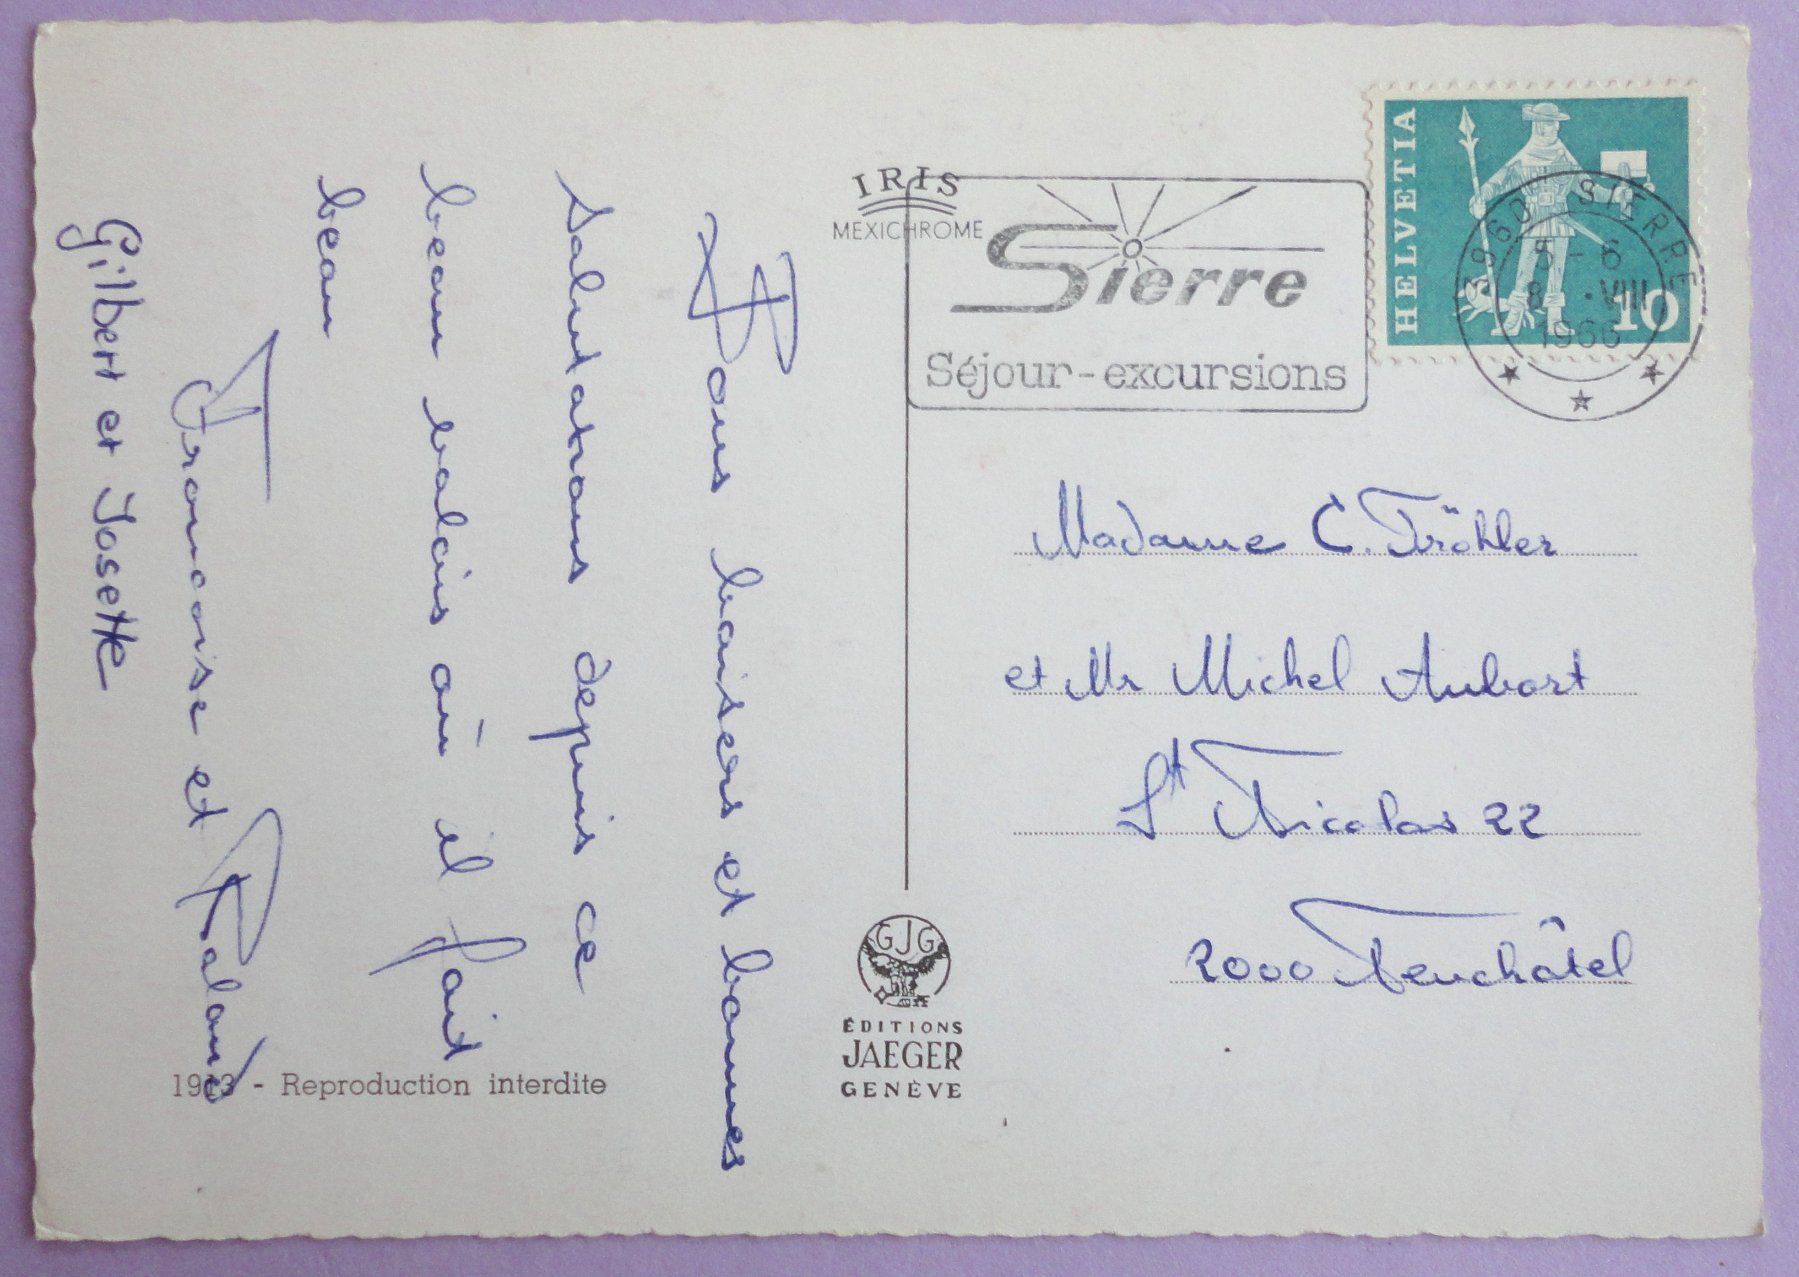 Bons baisers et bonnes
salutations depuis ce
beau valais où il fait
beau
Françoise et Roland
Gilbert et Josette
1913 - Reproduction interdite
IRIS
MEXICHROME
Sierre
Séjour-excursions
HELVETIA
10
3960 SIERRE
5-6
8.VIII
1966
Madame C. Tröhler
et Mr Michel Aubort
St Nicolas 22
2000 Neuchâtel
GJG
ÉDITIONS
JAEGER
GENÈVE